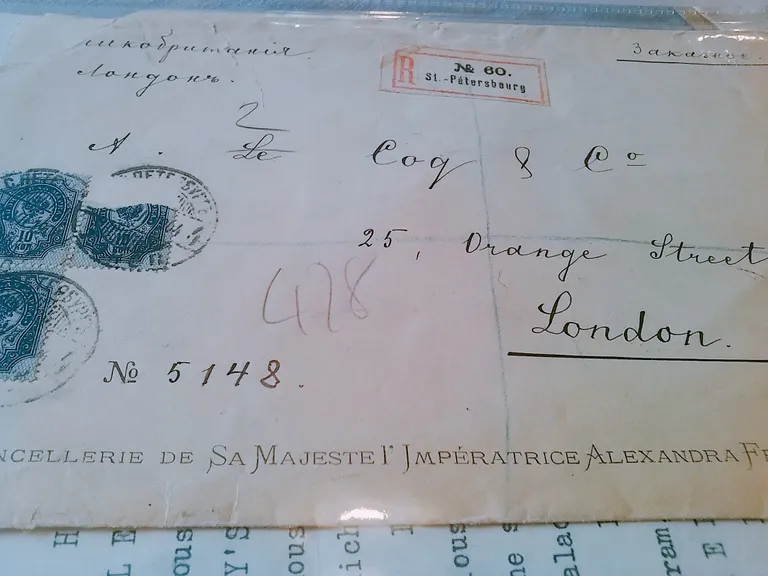 ликобританія
Лондонъ.
Заказное.
R
№ 60.
St.-Pétersbourg
2
A. Le Coq & Co
25, Orange Street
London.
10
478
№ 5148.
NCELLERIE DE SA MAJESTE l' IMPÉRATRICE ALEXANDRA FE